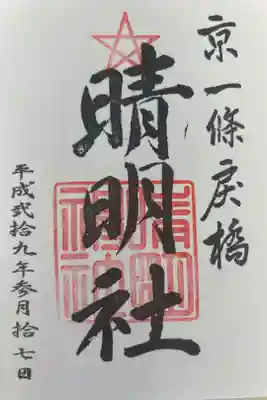 京一條戻橋
晴明社
平成弐拾九年参月拾七日